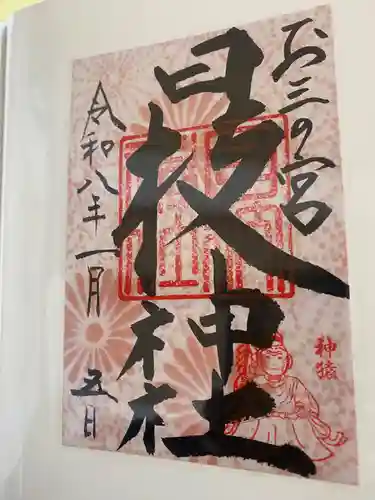 お三の宮
日枝神社
令和八年一月五日
神猿